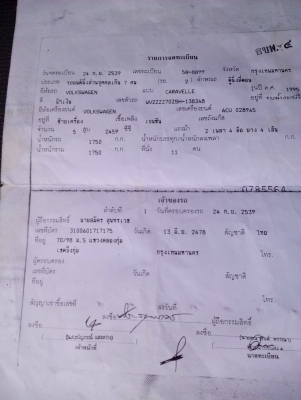 รายการจดทะเบียน
วันจดทะเบียน 24 ก.ย. 2539 เลขทะเบียน 5ห-8899 จังหวัด กรุงเทพมหานคร
ประเภท รถยนต์นั่งส่วนบุคคลเกิน 7 คน
ยี่ห้อรถ VOLKSWAGEN แบบ CARAVELLE รุ่นปี ค.ศ. 1995
สี เลขตัวรถ อยู่ที่
ยี่ห้อเครื่องยนต์ VOLKSWAGEN เลขเครื่องยนต์ ACU 028945
อยู่ที่ เชื้อเพลิง เบนซิน
จำนวน 5 สูบ 2459 ซีซี แรงม้า 2 เพลา 4 ล้อ ยาง 4 เส้น
น้ำหนักรถ 1750 ก.ก. น้ำหนักบรรทุก/น้ำหนักลงเพลา ก.ก.
น้ำหนักรวม 1750 ก.ก. ที่นั่ง 11 คน
เจ้าของรถ
ลำดับที่ 1 วันที่ครอบครองรถ 24 ก.ย. 2539
ผู้ถือกรรมสิทธิ์
เลขที่บัตร 3100601717175 วันเกิด 13 มิ.ย. 2478 สัญชาติ ไทย
ที่อยู่ 70/98 ม.5 แขวงคลองกุ่ม
เขตบึงกุ่ม กรุงเทพมหานคร โทร.
ผู้ครอบครอง
เลขที่บัตร วันเกิด สัญชาติ
ที่อยู่ โทร.
สัญญาเช่าซื้อเลขที่ ลงวันที่
ลงชื่อ ผู้ถือกรรมสิทธิ์
ลงชื่อ ลงชื่อ
เจ้าหน้าที่ นายทะเบียน